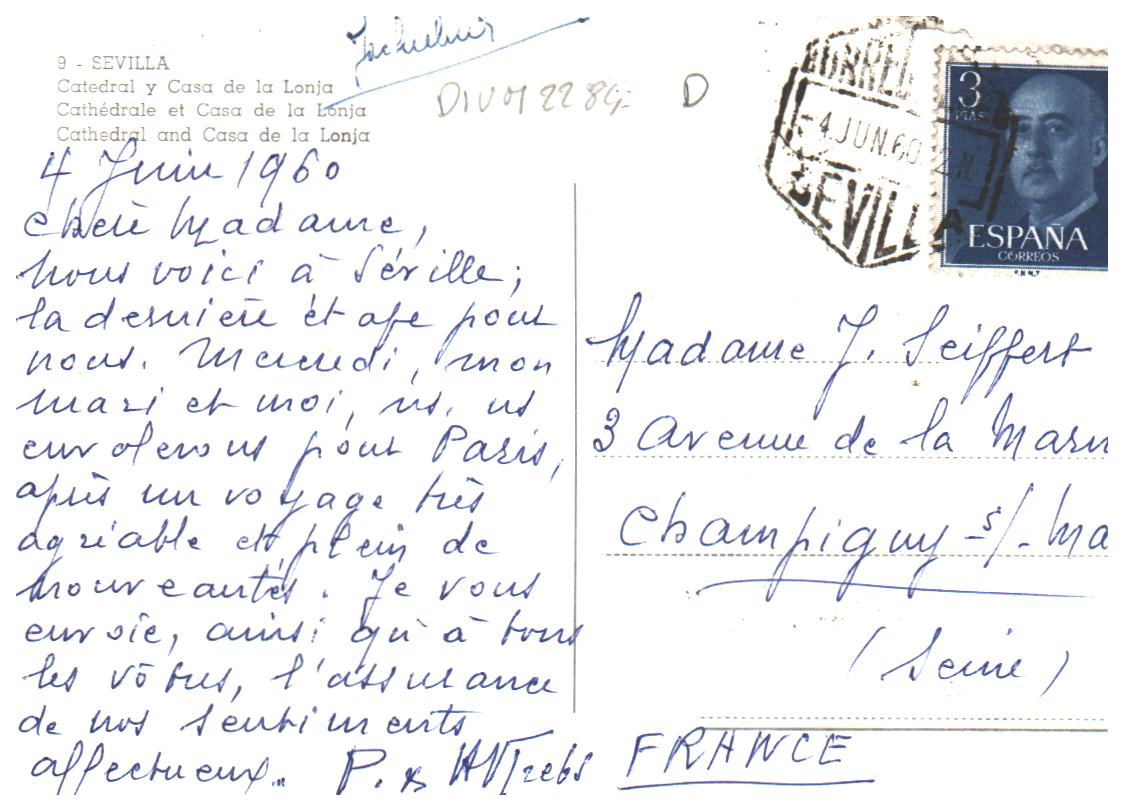 9 - SEVILLA
Catedral y Casa de la Lonja
Cathédrale et Casa de la Lonja
Cathedral and Casa de la Lonja
D
4 Juin 1960
Chère Madame,
nous voici à Séville;
la dernière étape pour
nous. Mercredi, mon
mari et moi, ns. ns
envolerons pour Paris,
après un voyage très
agréable et plein de
nouveautés. Je vous
envoie, ainsi qu'à tous
les vôtres, l'assurance
de nos sentiments
affectueux.. P. &
CORREO
-4.JUN.60. 2N
SEVILLA
3
PTAS
ESPAÑA
CORREOS
F.N.M.T
Madame J. Seiffert
3 Avenue de la Marn
Champigny - s/- Ma
(Seine)
FRANCE